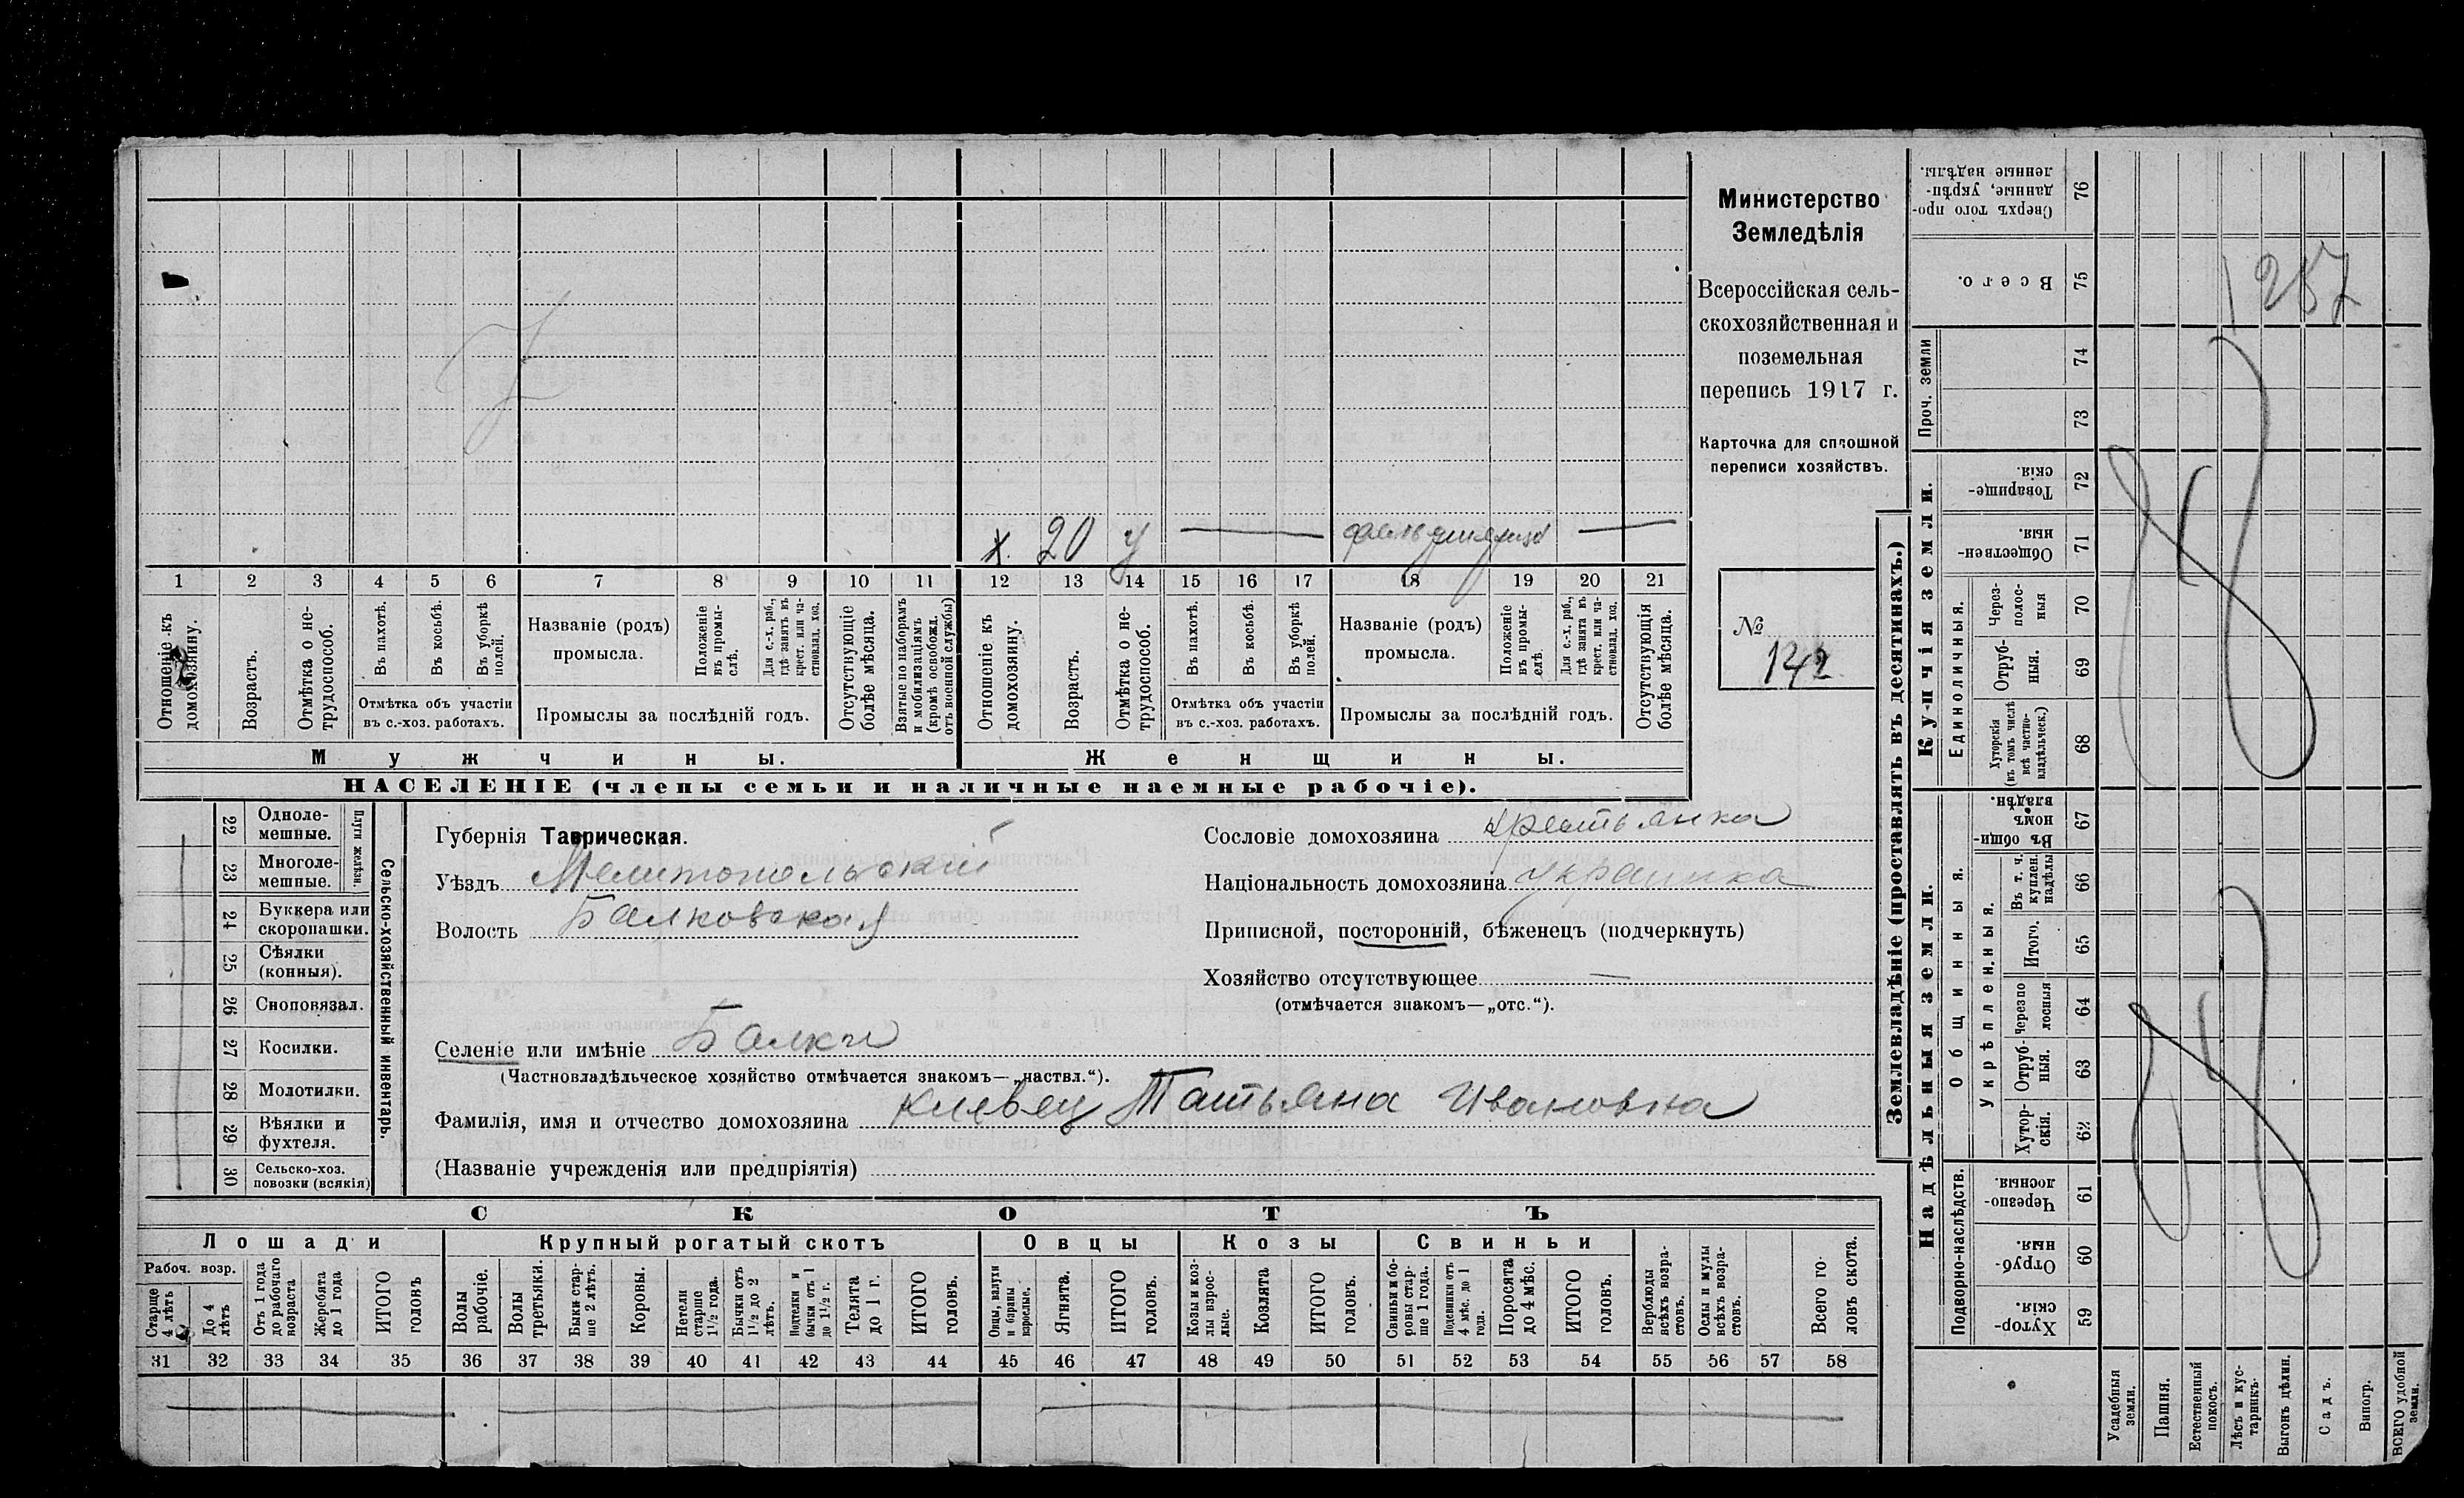 Министерство
Земледѣлія
Всероссійская сель-
скохозяйственная и
поземельная
перепись 1917 г.
Карточка для сплошной
переписи хозяйствъ.
№
142
х. 20 у
1 2 3 4 5 6 7 8 9 10 11 12 13 14 15 16 17 18 19 20 21
Отношеніе къ домохозяину.
Возрастъ.
Отмѣтка о не-трудоспособ.
Въ пахотѣ.
Въ косьбѣ.
Въ уборкѣ полей.
Отмѣтка объ участіи
въ с.-хоз. работахъ.
Названіе (родъ)
промысла.
Положеніе въ промы-слѣ.
Для с.-х. раб., гдѣ занятъ въ крест. или ча-стновлад. хоз.
Промыслы за послѣдній годъ.
Отсутствующіе болѣе мѣсяца.
Взятые по наборамъ и мобилизаціямъ (кромѣ освобожд. отъ военной службы)
Отношеніе къ домохозяину.
Возрастъ.
Отмѣтка о не-трудоспособ.
Въ пахотѣ.
Въ косьбѣ.
Въ уборкѣ полей.
Отмѣтка объ участіи
въ с.-хоз. работахъ.
Названіе (родъ)
промысла.
Положеніе въ промы-слѣ.
Для с.-х. раб., гдѣ занята въ крест. или ча-стновлад. хоз.
Промыслы за послѣдній годъ.
Отсутствующія болѣе мѣсяца.
Мужчины.
Женщины.
НАСЕЛЕНІЕ (члены семьи и наличные наемные рабочіе).
Сельско-хозяйственный инвентарь.
Плуги желѣзн.
22 Одноле-мешные.
23 Многоле-мешные.
24 Буккера или скоропашки.
25 Сѣялки (конныя).
26 Сноповязал.
27 Косилки.
28 Молотилки.
29 Вѣялки и фухтеля.
30 Сельско-хоз. повозки (всякія)
Губернія Таврическая.
Уѣздъ Мелитопольскій
Волость Балковская
Сословіе домохозяина крестьянка
Національность домохозяина украинка
Приписной, посторонній, бѣженецъ (подчеркнуть)
Хозяйство отсутствующее —
(отмѣчается знакомъ—„отс.“).
Селеніе или имѣніе Балки
(Частновладѣльческое хозяйство отмѣчается знакомъ—„частвл.“).
Фамилія, имя и отчество домохозяина Клевец Татьяна Ивановна
(Названіе учрежденія или предпріятія)
СКОТЪ
Лошади
Крупный рогатый скотъ
Овцы
Козы
Свиньи
Рабоч. возр.
Старше 4 лѣтъ
До 4 лѣтъ
Отъ 1 года до рабочаго возраста
Жеребята до 1 года
ИТОГО головъ
Волы рабочіе.
Волы третьяки.
Быки стар-ше 2 лѣтъ.
Коровы.
Нетели старше 1½ года.
Бычки отъ 1½ до 2 лѣтъ.
Подтелки и бычки отъ 1 до 1½ г.
Телята до 1 г.
ИТОГО головъ.
Овцы, валухи и бараны взрослые.
Ягнята.
ИТОГО головъ.
Козы и коз-лы взрос-лые.
Козлята
ИТОГО головъ.
Свиньи и бо-ровы стар-ше 1 года.
Подсвинки отъ 4 мѣс. до 1 года.
Поросята до 4 мѣс.
ИТОГО головъ.
Верблюды всѣхъ возра-стовъ.
Ослы и мулы всѣхъ возра-стовъ.
Всего го-ловъ скота.
31 32 33 34 35 36 37 38 39 40 41 42 43 44 45 46 47 48 49 50 51 52 53 54 55 56 57 58
Землевладѣніе (проставлять въ десятинахъ.)
Надѣльныя земли.
Купчія земли.
Проч. земли
Подворно-наслѣдств.
Общинныя.
Укрѣпленныя.
Единоличныя.
Хутор-скія. 59
Отруб-ныя. 60
Черезпо-лосныя. 61
Хутор-скія. 62
Отруб-ныя. 63
Черезпо-лосныя 64
Итого. 65
Въ т. ч. куплен. надѣлы 66
Въ общин-номъ владѣн. 67
Хуторскія (въ томъ числѣ всѣ частно-владѣльческ.) 68
Отруб-ныя. 69
Через-полос-ныя 70
Обществен-ныя. 71
Товарище-скія. 72
73
74
Всего. 75
Сверхъ того про-данные, укрѣп-ленные надѣлы. 76
1257
Усадебныя земли.
Пашня.
Естественный покосъ.
Лѣсъ и кус-тарникъ.
Выгонъ цѣлин.
Садъ.
Виногр.
ВСЕГО удобной земли.